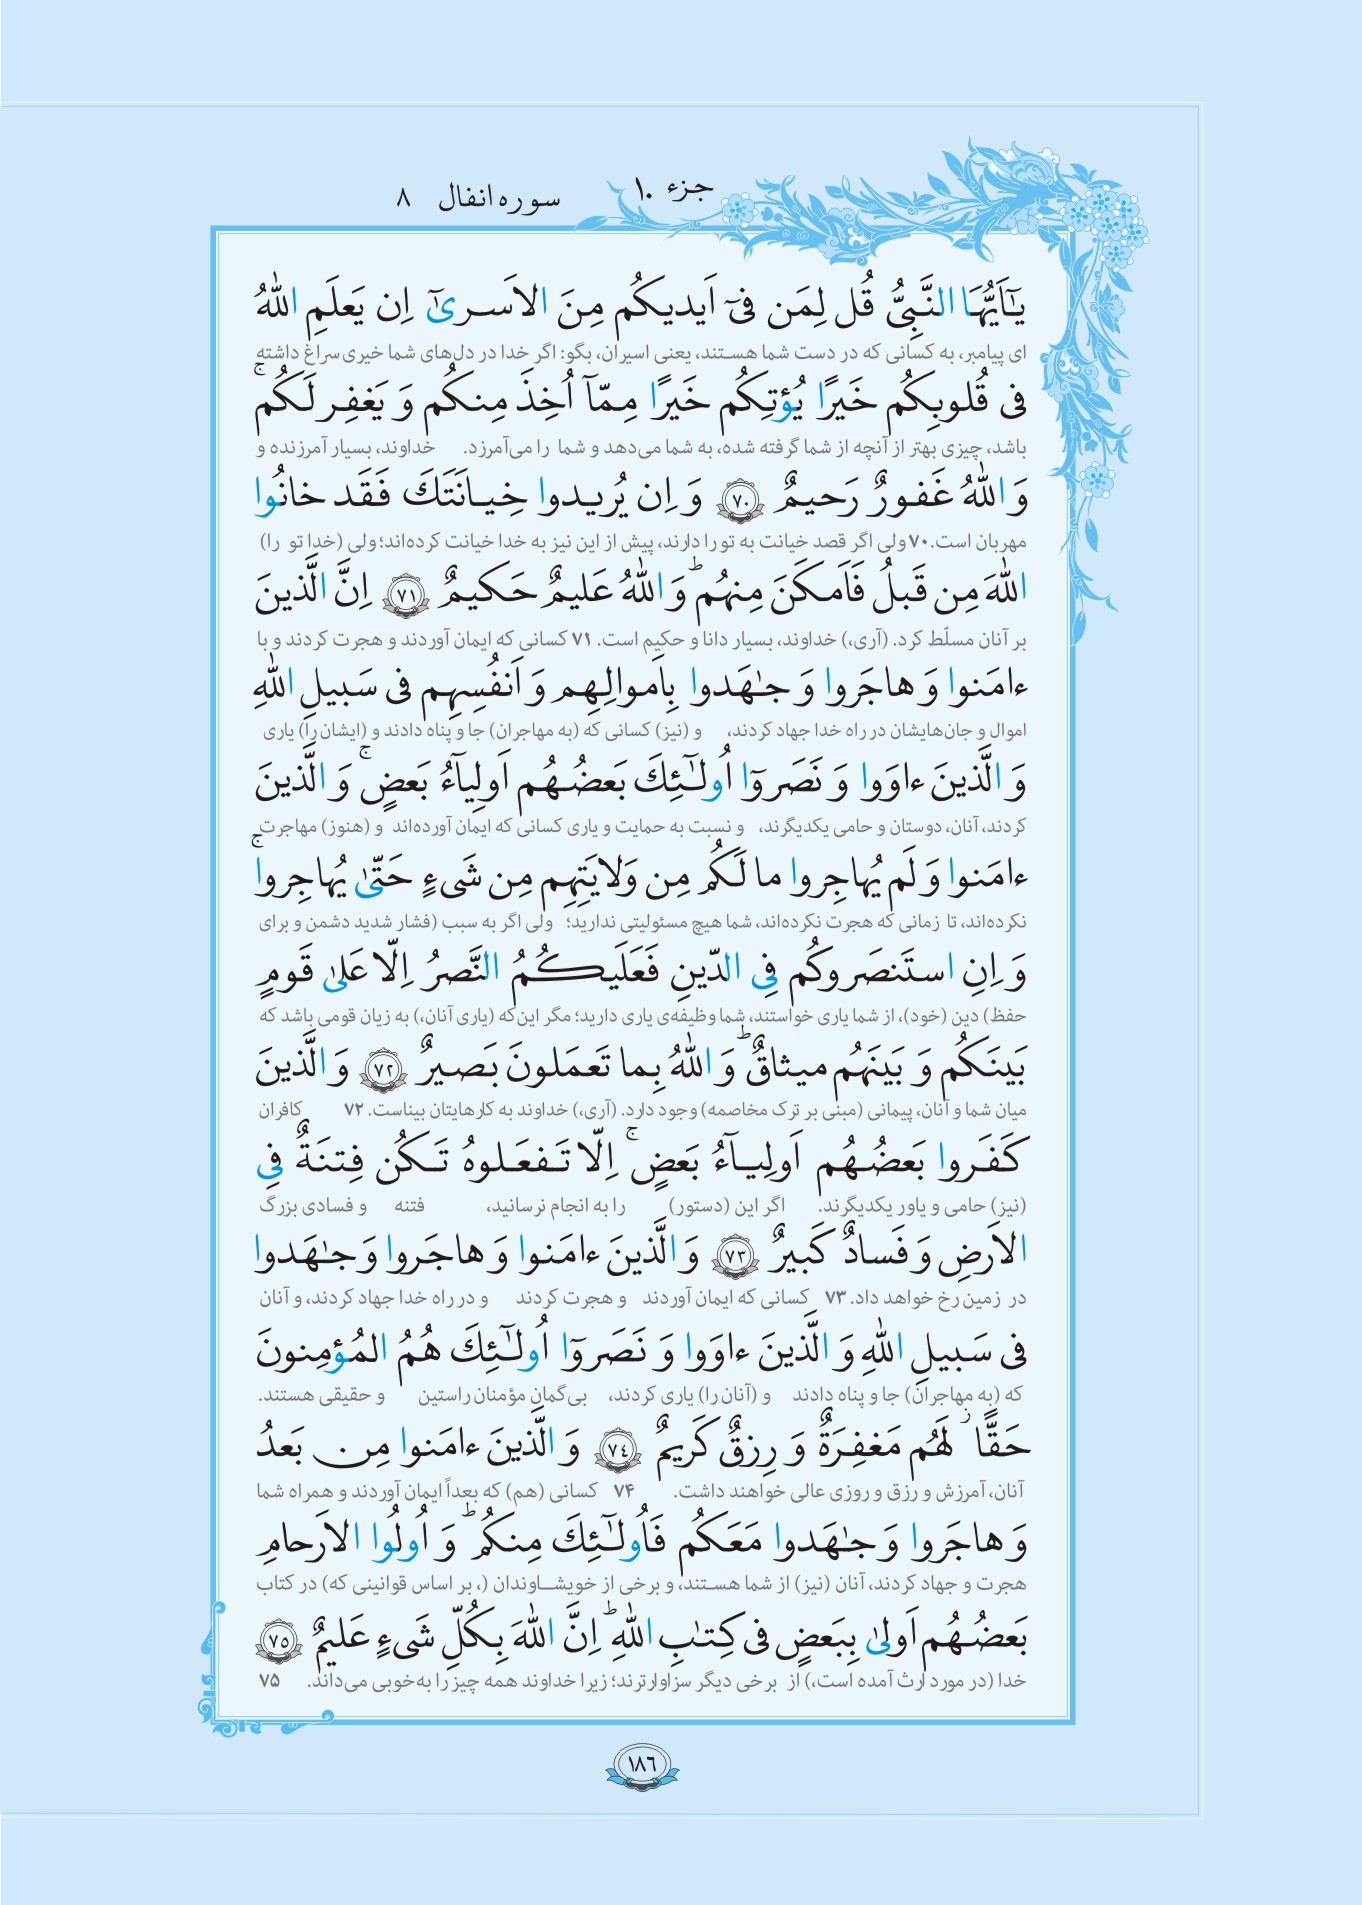 جزء ۱۰
سوره انفال ۸
يـٰٓاَيُّهَا النَّبِىُّ قُل لِمَن فىٓ اَيديكُم مِنَ الاَسرىٰٓ اِن يَعلَمِ اللّٰهُ
ای پیامبر، به کسانی که در دست شما هستند، یعنی اسیران، بگو: اگر خدا در دل‌های شما خیری سراغ داشته
فى قُلوبِكُم خَيرًا يُؤتِكُم خَيرًا مِمّآ اُخِذَ مِنكُم وَ يَغفِر لَكُم ۚ
باشد، چیزی بهتر از آنچه از شما گرفته شده، به شما می‌دهد و شما را می‌آمرزد. خداوند، بسیار آمرزنده و
وَاللّٰهُ غَفورٌ رَحيمٌ ﴿٧٠﴾ وَ اِن يُريدوا خِيانَتَكَ فَقَد خانُوا
مهربان است. ۷۰ ولی اگر قصد خیانت به تو را دارند، پیش از این نیز به خدا خیانت کرده‌اند؛ ولی (خدا تو را)
اللّٰهَ مِن قَبلُ فَاَمكَنَ مِنهُم ۗ وَ اللّٰهُ عَليمٌ حَكيمٌ ﴿٧١﴾ اِنَّ الَّذينَ
بر آنان مسلّط کرد. (آری،) خداوند، بسیار دانا و حکیم است. ۷۱ کسانی که ایمان آوردند و هجرت کردند و با
ءامَنوا وَ هاجَروا وَ جـٰهَدوا بِاَموالِهِم وَ اَنفُسِهِم فى سَبيلِ اللّٰهِ
اموال و جان‌هایشان در راه خدا جهاد کردند، و (نیز) کسانی که (به مهاجران) جا و پناه دادند و (ایشان را) یاری
وَ الَّذينَ ءاوَوا وَ نَصَروٓا اُولـٰٓئِكَ بَعضُهُم اَولِيآءُ بَعضٍ ۚ وَ الَّذينَ
کردند، آنان، دوستان و حامی یکدیگرند، و نسبت به حمایت و یاری کسانی که ایمان آورده‌اند و (هنوز) مهاجرت
ءامَنوا وَ لَم يُهاجِروا ما لَكُم مِن وَلايَتِهِم مِن شَىءٍ حَتّىٰ يُهاجِروا ۚ
نکرده‌اند، تا زمانی که هجرت نکرده‌اند، شما هیچ مسئولیتی ندارید؛ ولی اگر به سبب (فشار شدید دشمن و برای
وَ اِنِ استَنصَروكُم فِى الدّينِ فَعَلَيكُمُ النَّصرُ اِلّا عَلىٰ قَومٍ
حفظ) دین (خود)، از شما یاری خواستند، شما وظیفه‌ی یاری دارید؛ مگر این‌که (یاری آنان،) به زیان قومی باشد که
بَينَكُم وَ بَينَهُم ميثاقٌ ۗ وَ اللّٰهُ بِما تَعمَلونَ بَصيرٌ ﴿٧٢﴾ وَ الَّذينَ
میان شما و آنان، پیمانی (مبنی بر ترک مخاصمه) وجود دارد. (آری،) خداوند به کارهایتان بیناست. ۷۲ کافران
كَفَروا بَعضُهُم اَولِيآءُ بَعضٍ ۚ اِلّا تَفعَلوهُ تَكُن فِتنَةٌ فِى
(نیز) حامی و یاور یکدیگرند. اگر این (دستور) را به انجام نرسانید، فتنه و فسادی بزرگ
الاَرضِ وَ فَسادٌ كَبيرٌ ﴿٧٣﴾ وَ الَّذينَ ءامَنوا وَ هاجَروا وَ جـٰهَدوا
در زمین رخ خواهد داد. ۷۳ کسانی که ایمان آوردند و هجرت کردند و در راه خدا جهاد کردند، و آنان
فى سَبيلِ اللّٰهِ وَ الَّذينَ ءاوَوا وَ نَصَروٓا اُولـٰٓئِكَ هُمُ المُؤمِنونَ
که (به مهاجران) جا و پناه دادند و (آنان را) یاری کردند، بی‌گمان مؤمنان راستین و حقیقی هستند.
حَقًّا ۚ لَهُم مَغفِرَةٌ وَ رِزقٌ كَريمٌ ﴿٧٤﴾ وَ الَّذينَ ءامَنوا مِن بَعدُ
آنان، آمرزش و رزق و روزی عالی خواهند داشت. ۷۴ کسانی (هم) که بعداً ایمان آوردند و همراه شما
وَ هاجَروا وَ جـٰهَدوا مَعَكُم فَاُولـٰٓئِكَ مِنكُم ۗ وَ اُولُوا الاَرحامِ
هجرت و جهاد کردند، آنان (نیز) از شما هستند، و برخی از خویشاوندان (، بر اساس قوانینی که) در کتاب
بَعضُهُم اَولىٰ بِبَعضٍ فى كِتـٰبِ اللّٰهِ ۗ اِنَّ اللّٰهَ بِكُلِّ شَىءٍ عَليمٌ ﴿٧٥﴾
خدا (در مورد ارث آمده است،) از برخی دیگر سزاوارترند؛ زیرا خداوند همه چیز را به‌خوبی می‌داند. ۷۵
۱۸۶